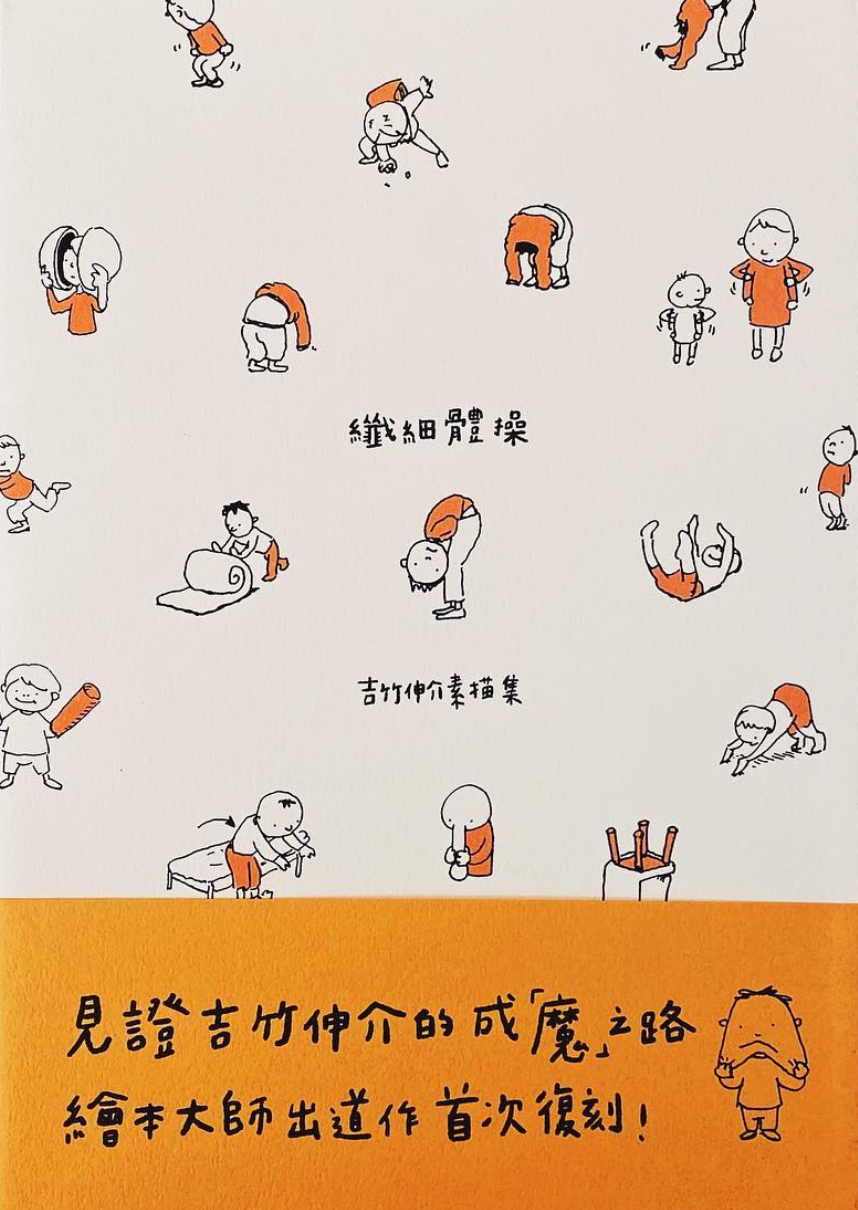 纖細體操
吉竹伸介素描集
見證吉竹伸介的成「魔」之路
繪本大師出道作首次復刻！